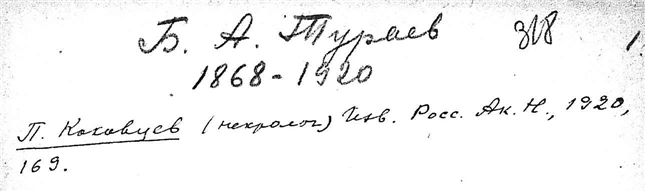 Б. А. Тураев 318 1.
1868-1920
П. Коковцев (некролог) Изв. Росс. Ак. Н., 1920,
169.